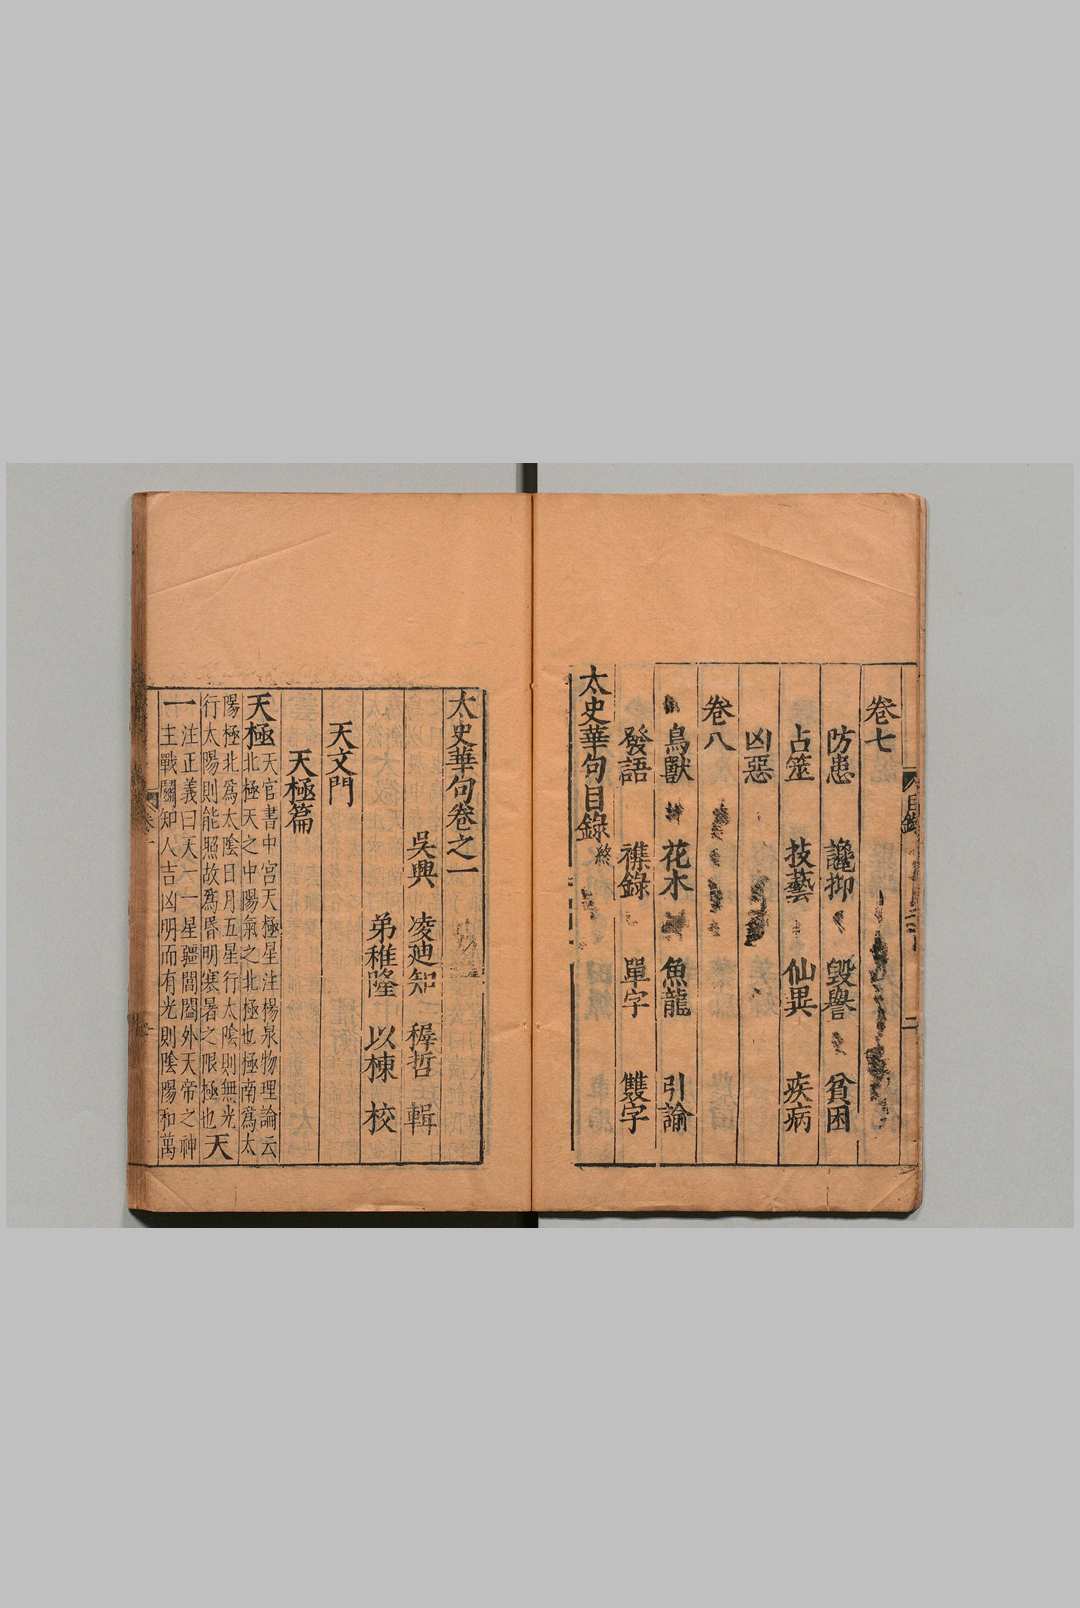 卷七
防患 讒抑 毀譽 貧困
占筮 技藝 仙異 疾病
凶惡
卷八
鳥獸 花木 魚龍 引諭
發語 襍錄 單字 雙字
太史華句目錄終
太史華句卷之一
吳興 凌廸知 穉哲 輯
弟稚隆 以棟 校
天文門
天極篇
天極天官書中宮天極星注楊泉物理論云
北極天之中陽氣之北極也極南爲太
陽極北爲太陰日月五星行太陰則無光
行太陽則能照故爲昏明寒暑之限極也天
一注正義曰天一一星疆閶闔外天帝之神
主戰鬬知人吉凶明而有光則陰陽和萬